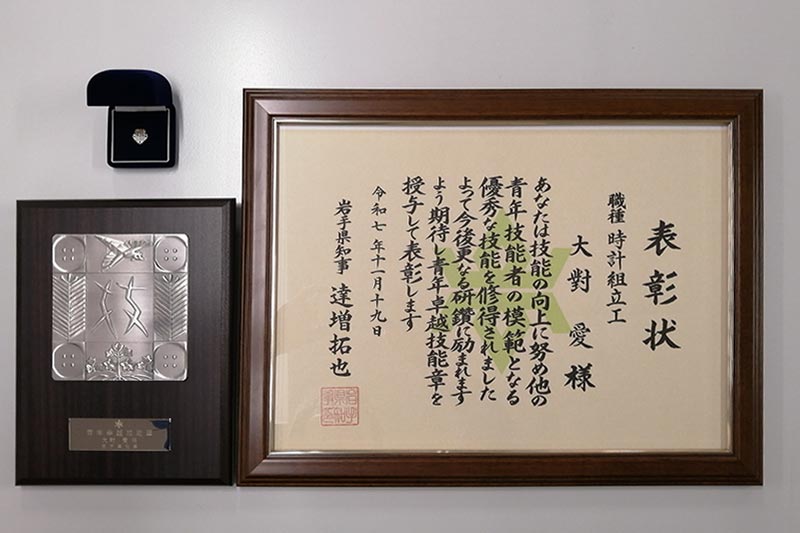 表彰状
職種 時計組立工
大對 愛 様
あなたは技能の向上に努め他の
青年技能者の模範となる
優秀な技能を修得されました
よって今後更なる研鑽に励まれます
よう期待し青年卓越技能章を
授与して表彰します
令和七年十一月十九日
岩手県知事 達増拓也